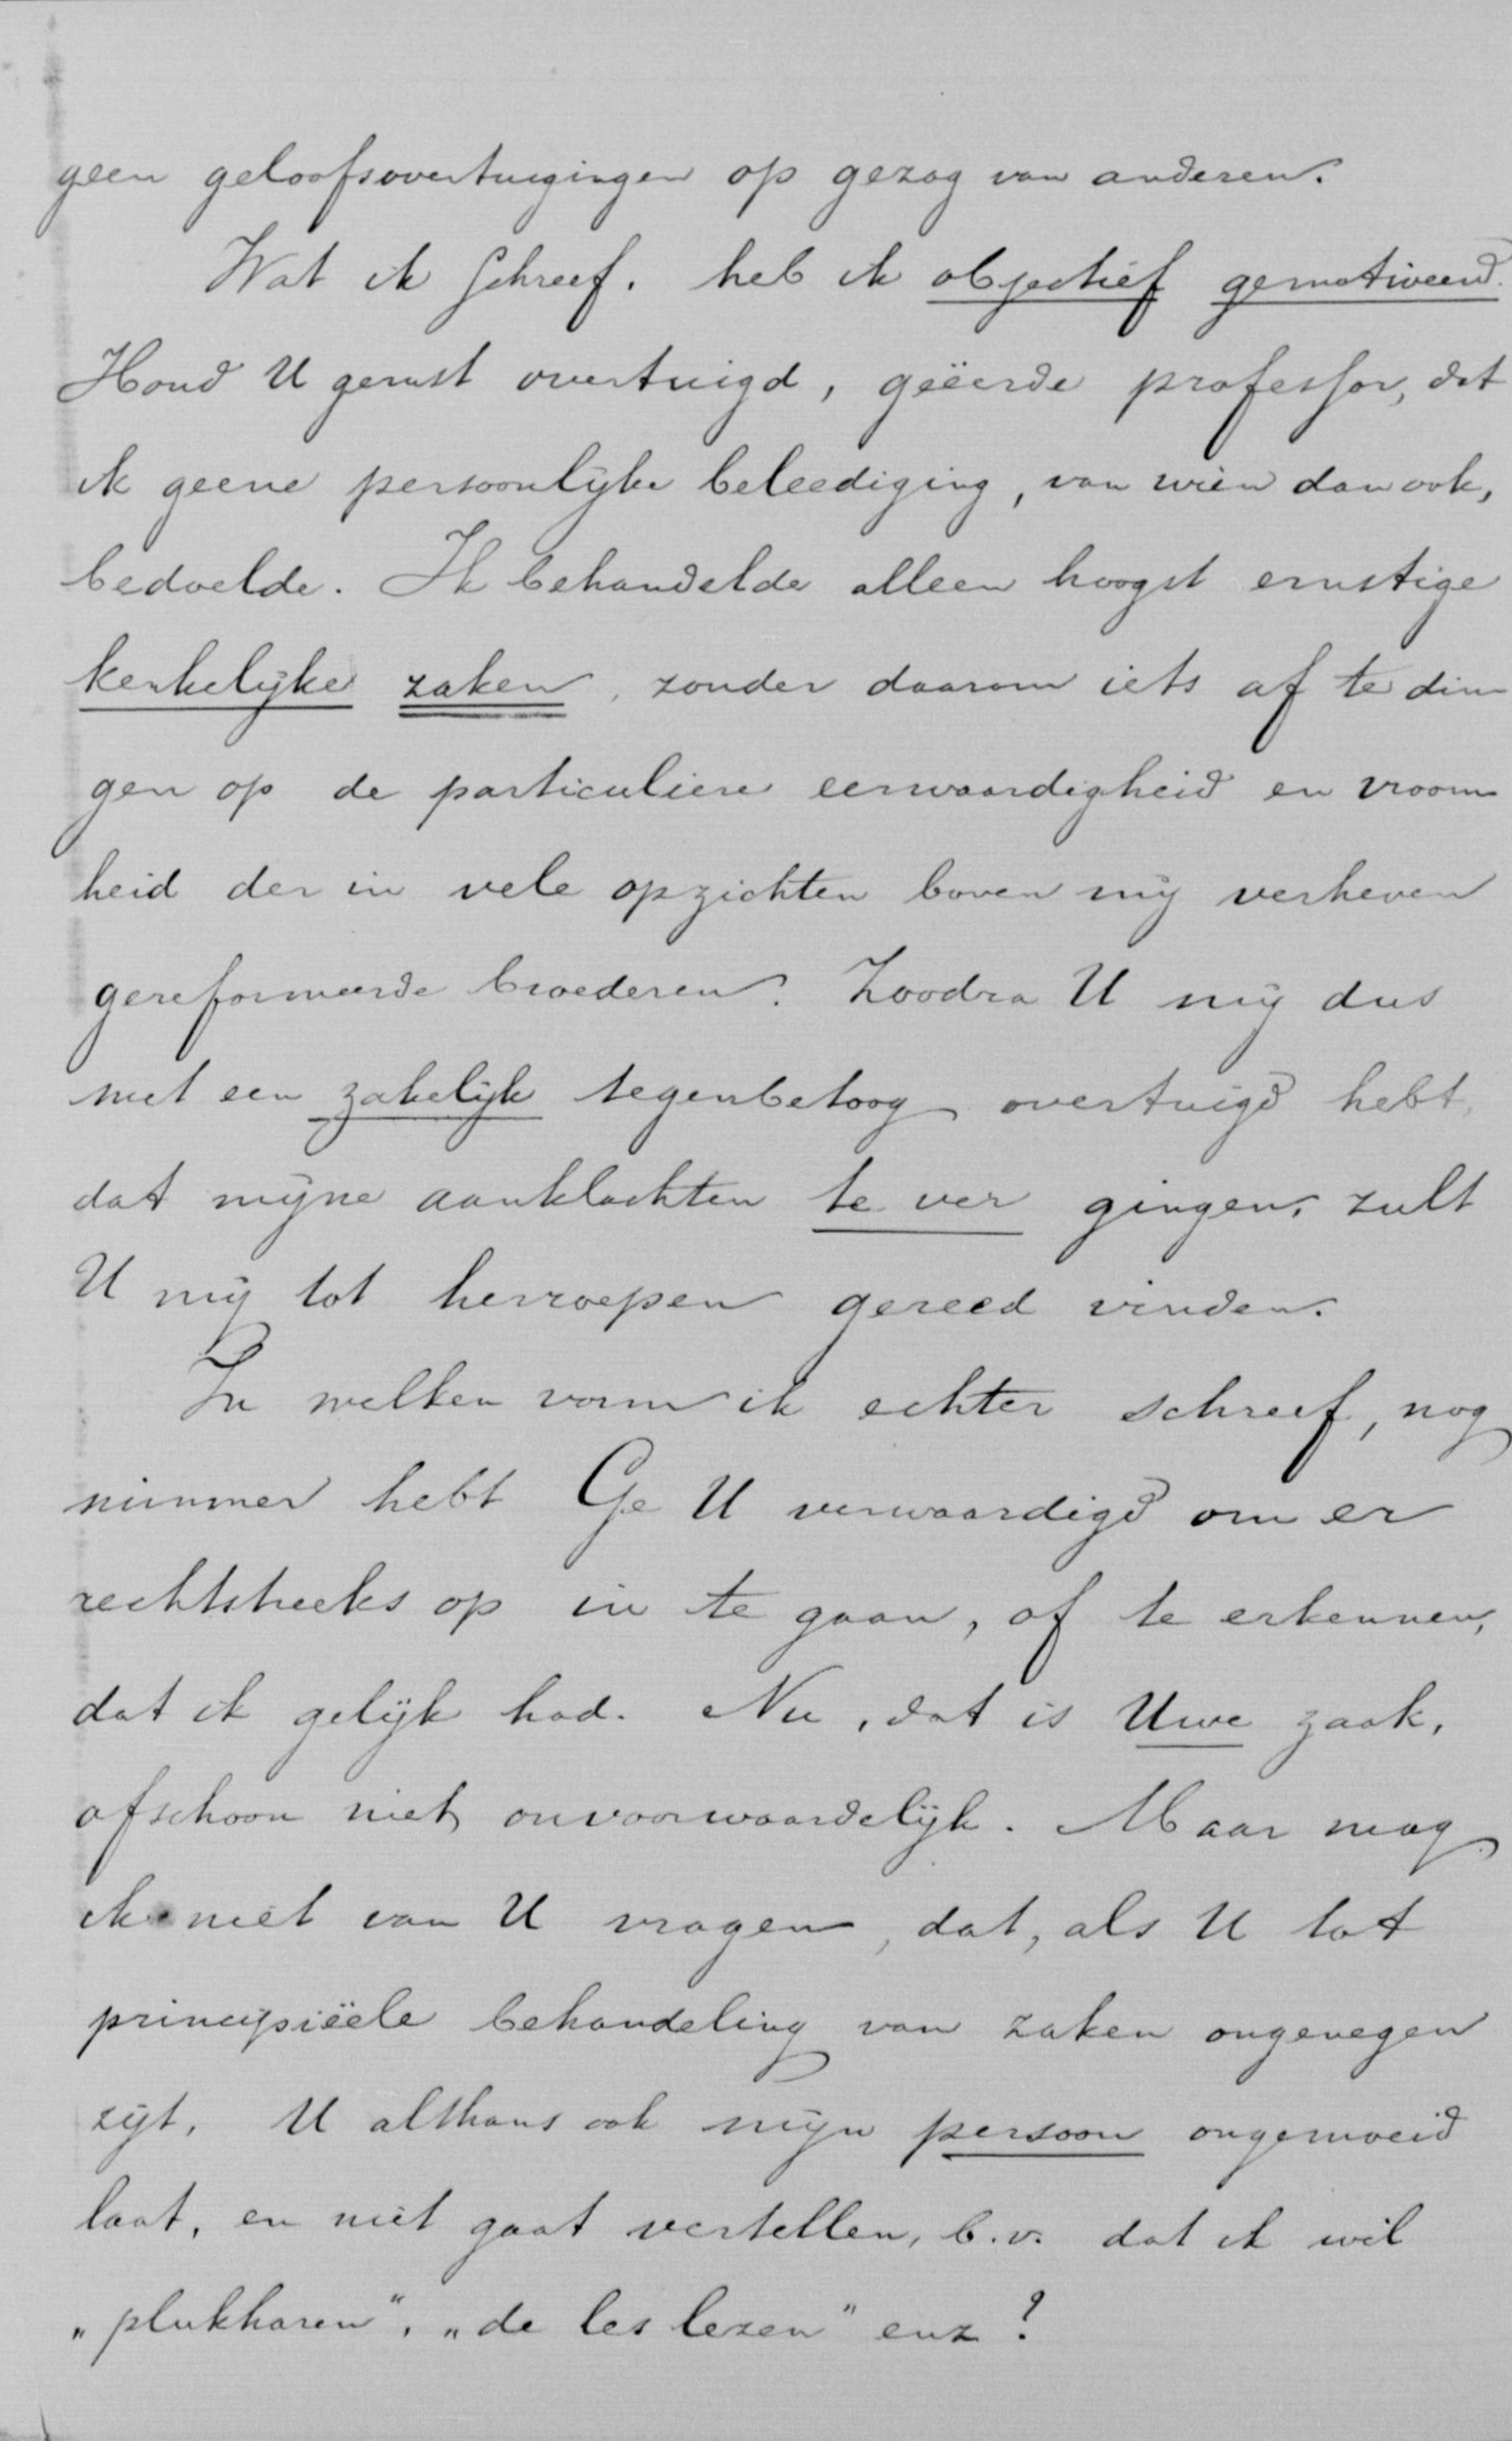 geen geloofsovertuigingen op gezag van anderen.
Wat ik schreef, heb ik objectief gemotiveerd.
Houd U gerust overtuigd, geëerde professor, dat
ik geene persoonlijke beleediging, van wien dan ook,
bedoelde. Ik behandelde alleen hoogst ernstige
kerkelijke zaken, zonder daarom iets af te din-
gen op de particuliere eerwaardigheid en vroom-
heid der in vele opzichten boven mij verheven
gereformeerde broederen. Zoodra U mij dus
met een zakelijk tegenbetoog overtuigd hebt,
dat mijne aanklachten te ver gingen, zult
U mij tot herroepen gereed vinden.
In welken vorm ik echter schreef, nog
nimmer hebt Ge U verwaardigd om er
rechtstreeks op in te gaan, of te erkennen,
dat ik gelijk had. Nu, dat is Uwe zaak,
ofschoon niet onvoorwaardelijk. Maar mag
ik niet van U vragen, dat, als U tot
principiëele behandeling van zaken ongenegen
zijt, U althans ook mijn persoon ongemoeid
laat, en niet gaat vertellen, b.v. dat ik wil
„plukharen", „de les lezen" enz?